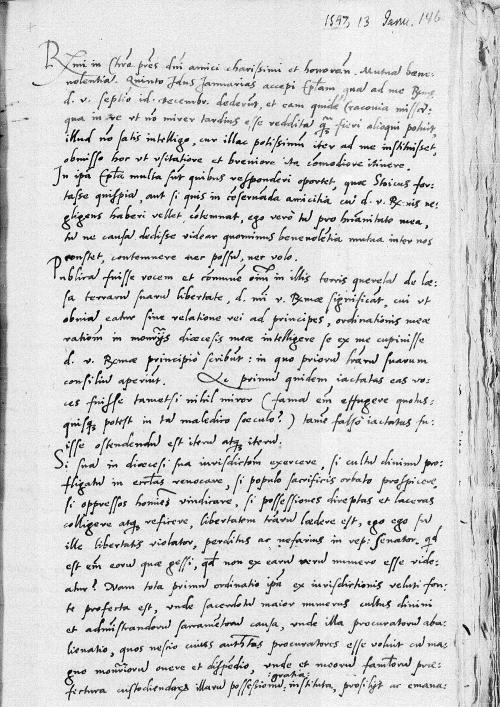 1547, 13 Janu. 146
Rmi in Chro pres dni amici charissimi et honoran. Mutua bene-
volentia. Quinto Idus Januarias accepi Eptam, qua ad me Rmæ
d. v. septio id. decembr. dederut, et eam quide Cracouia missa:
qua in re vt no mirer tardius esse reddita qz fieri alioqui potuit,
illud no satis intelligo, cur illac potissimu iter ad me instituisset
obmisso hoc vt vsitatiore et breuiore ita comodiore itinere.
In ipa Epta multa sut quibus respondere oportet, quæ Stoicus for-
tasse quispia, aut si quis in coseruada amicitia cu d. v. Rmis ne-
gligens haberi vellet, cotemnat, ego vero tu pro humanitate mea,
tu ne causa dedisse videar quominus beneuoletia mutua inter nos
constet, contemnere nec possu, nec volo.
Publica fuisse vocem et comune oim in illis terris querela de læ-
sa terraru suaru libertate, d. mi v. Rmæ significat, cui vt
obuia eatur sine relatione rei ad principes, ordinationis meæ
ratiom in monrijs diœcesis meæ intelligere se ex me cupiuisse
d. v. Rmæ principio scribut: in quo prioru lraru suarum
consiliu aperiut. Ac primu quidem iactatas eas vo-
ces fuisse tametsi nihil miror (fama em effugere quotus-
quisqz potest in ta maledico sæculo?) tam falso iactatas fu-
isse ostendendu est iteru atqz iteru.
Si sua in diœcesi sua iurisdictiom exercere, si cultu diuinu pro-
fligatu in ecctas reuocare, si populo sacrificiis orbato prospicere,
si oppressos homies vindicare, si possessiones direptas et laceras
colligere atqz reficere, libertatem traru lædere est, ego ego su
ille libertatis violator, perditus ac nefarius in rep: senator. qd
est em eoru quæ gessi, qd non ex earu reru numero esse vide-
atur? Nam tota primu ordinatio ipa ex iurisdictionis veluti fon-
te profecta est, vnde sacerdotu maior numerus cultus diuini
et administrandoru sacrametoru causa, vnde illa procuratoru aba-
lienatio, quos nescio cuius authtas procuratores esse voluit cu ma-
gno monrioru onere et dispedio, vnde et meoru famloru præ-
fectura custodiendaru illaru possessionu gratia instituta, prosilijt ac emana-